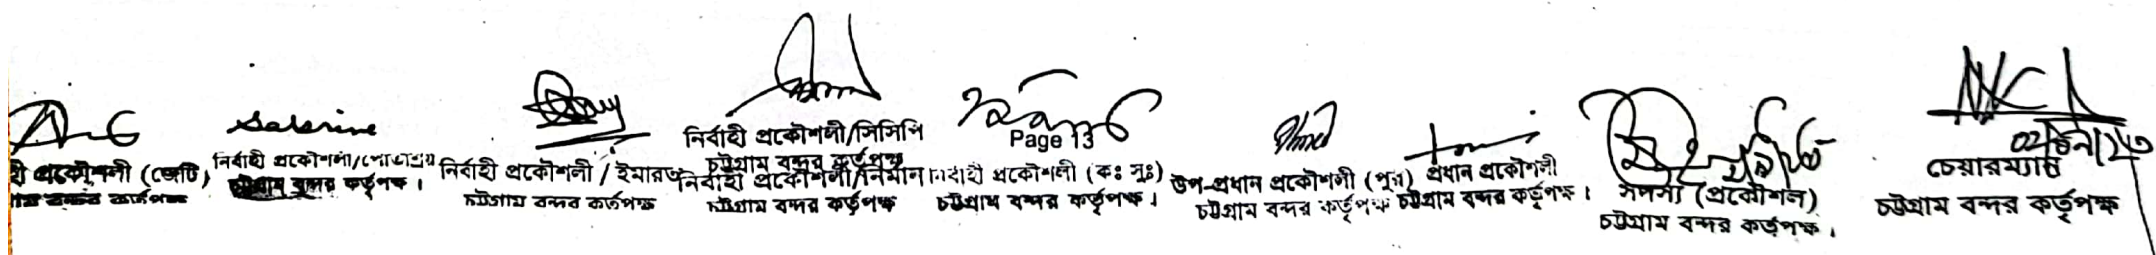 Sabrina
Page 13
Ahmed
নির্বাহী প্রকৌশলী/সিসিপি
চট্টগ্রাম বন্দর কর্তৃপক্ষ
প্রকৌশলী (জেটি)
বন্দর কর্তৃপক্ষ
নির্বাহী প্রকৌশলী/পোতাশ্রয়
চট্টগ্রাম বন্দর কর্তৃপক্ষ।
নির্বাহী প্রকৌশলী / ইমারত
চট্টগ্রাম বন্দর কর্তৃপক্ষ
নির্বাহী প্রকৌশলী/নির্মাণ
চট্টগ্রাম বন্দর কর্তৃপক্ষ
নির্বাহী প্রকৌশলী (কঃ সুঃ)
চট্টগ্রাম বন্দর কর্তৃপক্ষ।
উপ-প্রধান প্রকৌশলী (পুর)
চট্টগ্রাম বন্দর কর্তৃপক্ষ
প্রধান প্রকৌশলী
চট্টগ্রাম বন্দর কর্তৃপক্ষ।
সদস্য (প্রকৌশল)
চট্টগ্রাম বন্দর কর্তৃপক্ষ।
চেয়ারম্যান
চট্টগ্রাম বন্দর কর্তৃপক্ষ